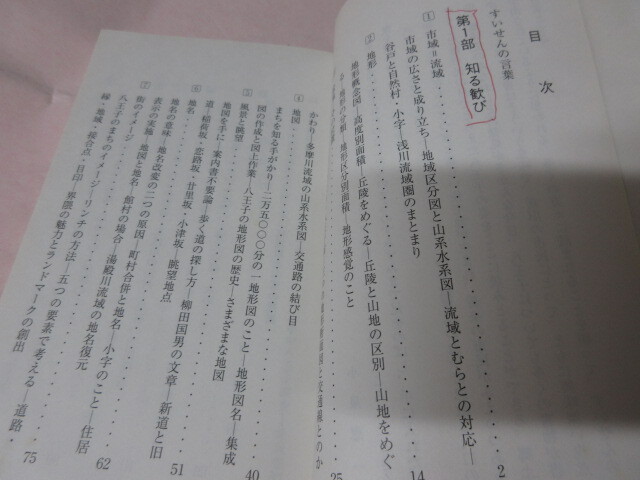 目次
すいせんの言葉
第1部 知る歓び
① 市域=流域 2
市域の広さと成り立ち―地域区分図と山系水系図―流域とむらとの対応―
谷戸と自然村・小字―浅川流域圏のまとまり
② 地形 14
地形概念図・高度別面積―丘陵をめぐる―丘陵と山地の区別―山地をめぐ
る・地形の分類・地形区分別面積―地形感覚のこと
25
図と交通路とのか
かわり―多摩川流域の山系水系図―交通路の結び目
④ 地図 40
まちを知る手がかり―二万五〇〇〇分の一地形図のこと―地形図名―集成
図の作成と図上作業―八王子の地形図の歴史―さまざまな地図
⑤ 風景と眺望 51
地図を手に―案内書不要論―歩く道の探し方―柳田国男の文章―新道と旧
道―稲荷坂・恋路坂・廿里坂・小津坂―眺望地点
⑥ 地名 62
地名の意味・地名改変の二つの原因―町村合併と地名―小字のこと―住居
表示の実施―地図と地名・館村の場合―湯殿川流域の地名復元
⑦ 街のイメージ 75
八王子のまちのイメージ―リンチの方法―五つの要素で考える―道路・
縁・地域・接合点・目印―界隈の魅力とランドマークの創出